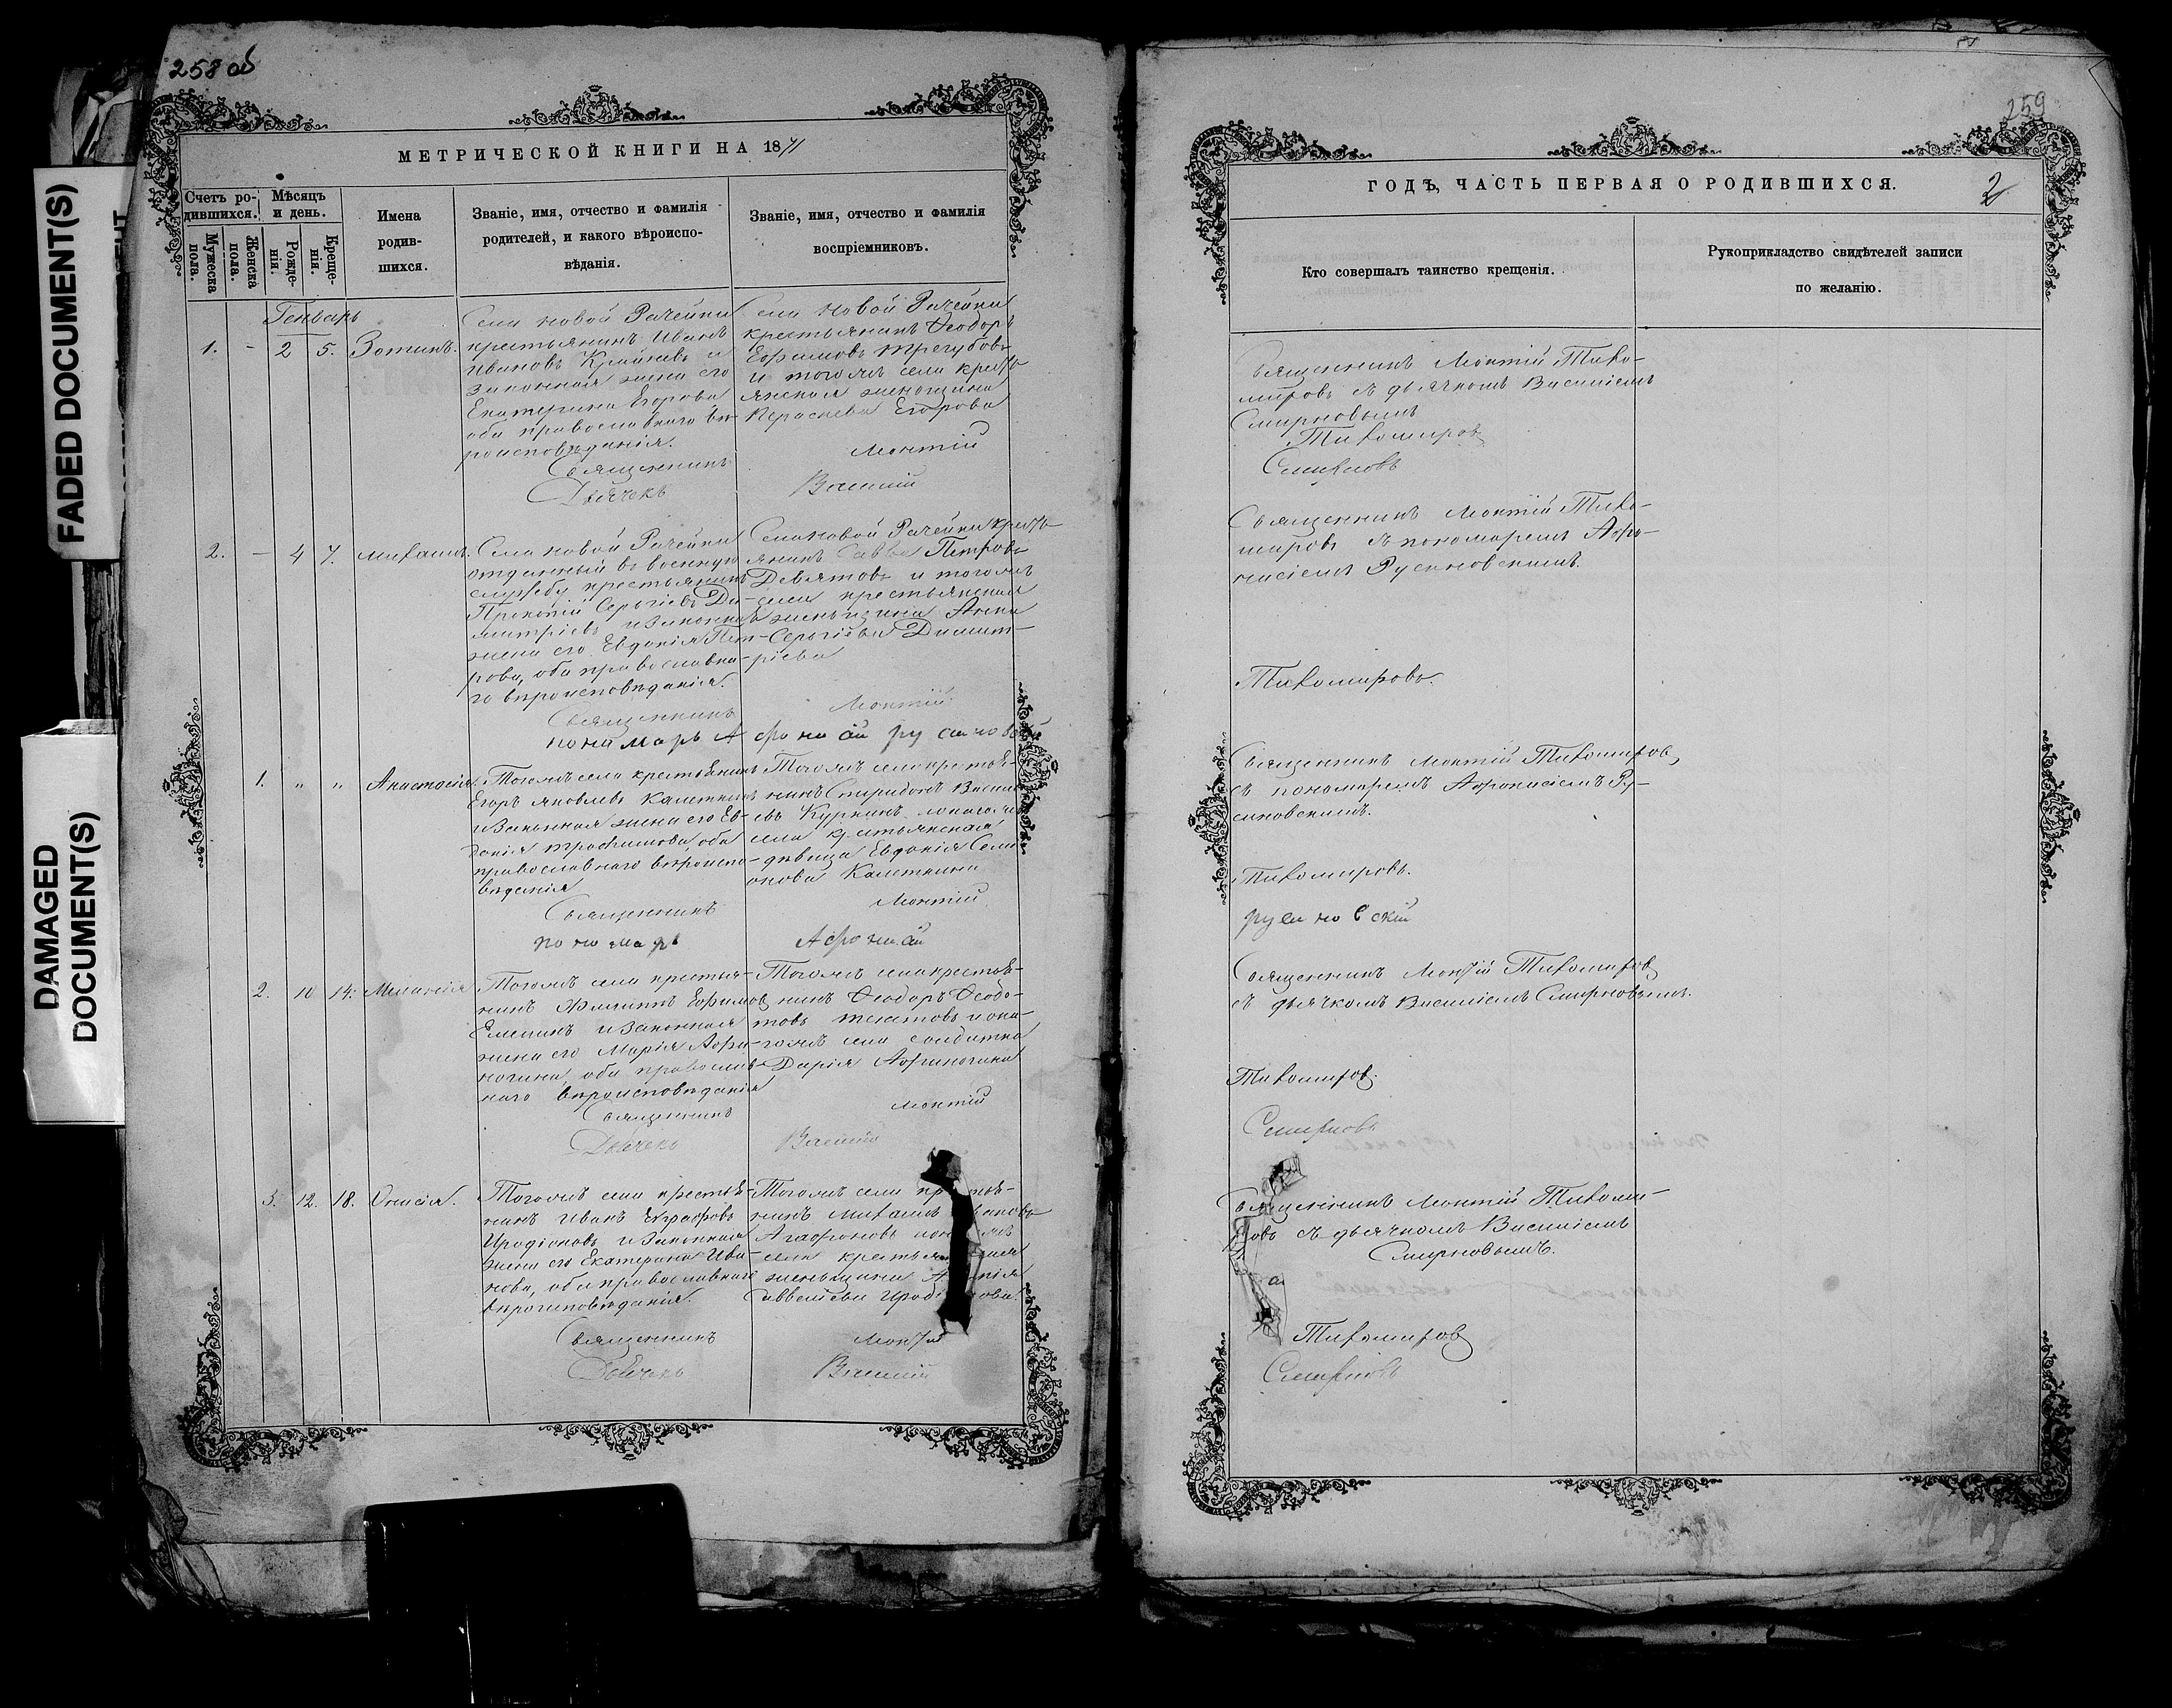 258 об
МЕТРИЧЕСКОЙ КНИГИ НА 1871
Счетъ ро-
дившихся.
Мѣсяцъ
и день.
Мужеска
пола.
Женска
пола.
Рожде-
нія.
Креще-
нія.
Имена
родив-
шихся.
Званіе, имя, отчество и фамилія
родителей, и какого вѣроиспо-
вѣданія.
Званіе, имя, отчество и фамилія
воспріемниковъ.
Генварь
1. - 2 5. Зотикъ.
Села Новой Рачейки
крестьянинъ Иванъ
Ивановъ и
законная жена его
Екатерина Егорова
оба православнаго вѣ-
роисповѣданія.
Села Новой Рачейки
крестьянинъ Ѳеодоръ
Ефимовъ Трегубовъ
и тогожъ села кресть
янская женщина
Параскева Егорова
Священникъ Монтій
Дьячекъ Василій
2. - 4 7. Михаилъ.
Села Новой Рачейки
отданный въ военную
службу крестьянинъ
Прокопій Сергіевъ Ди-
митріевъ и законная
жена его Евдокія Пет-
рова, оба православна-
го вѣроисповѣданія.
Села Новой Рачейки кресть
янинъ Савва Петровъ
Девятовъ и тогожъ
села крестьянская
женщина Анна
Сергіева Димит-
ріева
Священникъ Монтій
пономарь Афонасій русановскій
1. " " Анастасія.
Тогожъ села крестьянинъ
Егоръ Яковлевъ Калеткинъ
и законная жена его Ев-
докія Трофимова, оба
православнаго вѣроиспо-
вѣданія
Тогожъ села крестья-
нинъ Спиридонъ Василь
евъ Куркинъ и онагожъ
села крестьянская
дѣвица Евдокія Сели-
онова Калеткина
Священникъ Монтій
пономарь Афонасій
2. 10 14. Меланія
Тогожъ села крестья-
нинъ Филиппъ Ефимовъ
Емелинъ и законная
жена его Марія Афи-
ногина, оба православ-
наго вѣроисповѣданія
Тогожъ села крестья-
нинъ Ѳеодоръ Ѳедо-
товъ и она-
гожъ села солдатка
Дарія Афиногина
Священникъ Монтій
Дьячекъ Василій
3. 12. 18. Ксенія.
Тогожъ села крестья-
нинъ Иванъ Евграфовъ
Иродіоновъ и законная
жена его Екатерина Ива-
нова, оба православнаго
вѣроисповѣданія.
Тогожъ села
нинъ Михаилъ
Агафоновъ
села
женьщина
Савельева
Священникъ Монтій
Дьячекъ Василій
259
ГОДЪ, ЧАСТЬ ПЕРВАЯ О РОДИВШИХСЯ.
2
Кто совершалъ таинство крещенія.
Рукоприкладство свидѣтелей записи
по желанію.
Священникъ Монтій Тихо-
мировъ съ дьячкомъ Василіемъ
Смирновымъ
Тихомировъ
Смирновъ
Священникъ Монтій Тихо-
мировъ съ пономаремъ Афо-
насіемъ Русановскимъ.
Тихомировъ.
Священникъ Монтій Тихомировъ
съ пономаремъ Афонасіемъ Ру-
сановскимъ.
Тихомировъ.
русановскій
Священникъ Монтій Тихомировъ
съ дьячкомъ Василіемъ Смирновымъ.
Тихомировъ.
Смирновъ
Священникъ Монтій Тихоми-
ровъ съ дьячкомъ Василіемъ
Смирновымъ.
Тихомировъ
Смирновъ
FADED DOCUMENT(S)
DAMAGED
DOCUMENT(S)